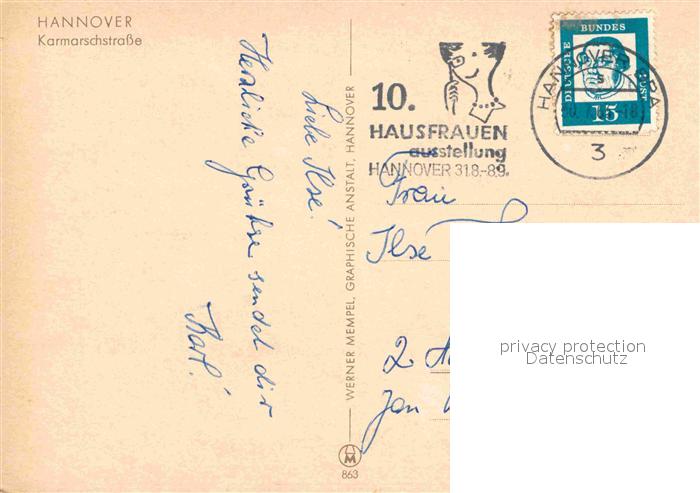 HANNOVER
Karmarschstraße
Liebe Ilse!
Herzliche Grüße sendet dir
Karl!
WERNER MEMPEL, GRAPHISCHE ANSTALT, HANNOVER
863
10.
HAUSFRAUEN
ausstellung
HANNOVER 31.8.-8.9.
HANNOVER
3
DEUTSCHE
BUNDES
POST
15
Frau
Ilse
2
privacy protection
Datenschutz